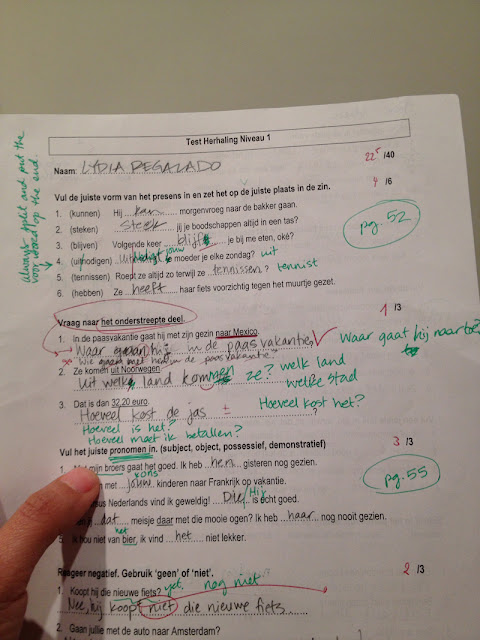 Test Herhaling Niveau 1
Naam: LYDIA REGALADO
22⁵ /40
always split and put the
voorzetsel op the end.
Vul de juiste vorm van het presens in en zet het op de juiste plaats in de zin.
4 /6
1. (kunnen) Hij kan morgenvroeg naar de bakker gaan.
2. (steken) Steek jij je boodschappen altijd in een tas?
pg. 52
3. (blijven) Volgende keer blijf je bij me eten, oké?
4. (uitnodigen) Uitnodigt jouw je moeder je elke zondag? uit
5. (tennissen) Roept ze altijd zo terwijl ze tennissen? tennist
6. (hebben) Ze heeft haar fiets voorzichtig tegen het muurtje gezet.
Vraag naar het onderstreepte deel.
1 /3
1. In de paasvakantie gaat hij met zijn gezin naar Mexico.
Waar gaan hij in de paasvakantie, Waar gaat hij naartoe?
in de paasvakantie?
2. Ze komen uit Noorwegen
Uit welk land komen ze? welk land
welke stad
3. Dat is dan 32,20 euro.
Hoeveel kost de jas ± Hoeveel kost het?
Hoeveel is het?
Hoeveel moet ik betallen?
Vul het juiste pronomen in. (subject, object, possessief, demonstratief)
3 /3
1. Met mijn broers gaat het goed. Ik heb hen gisteren nog gezien.
ons
met jouw kinderen naar Frankrijk op vakantie.
pg. 55
Nederlands vind ik geweldig! Die Hij is echt goed.
dat meisje daar met die mooie ogen? Ik heb haar nog nooit gezien.
het
5. Ik hou niet van bier, ik vind het niet lekker.
Reageer negatief. Gebruik 'geen' of 'niet'.
2 /3
1. Koopt hij die nieuwe fiets? yet, nog niet
Nee, hij koopt niet die nieuwe fiets
2. Gaan jullie met de auto naar Amsterdam?